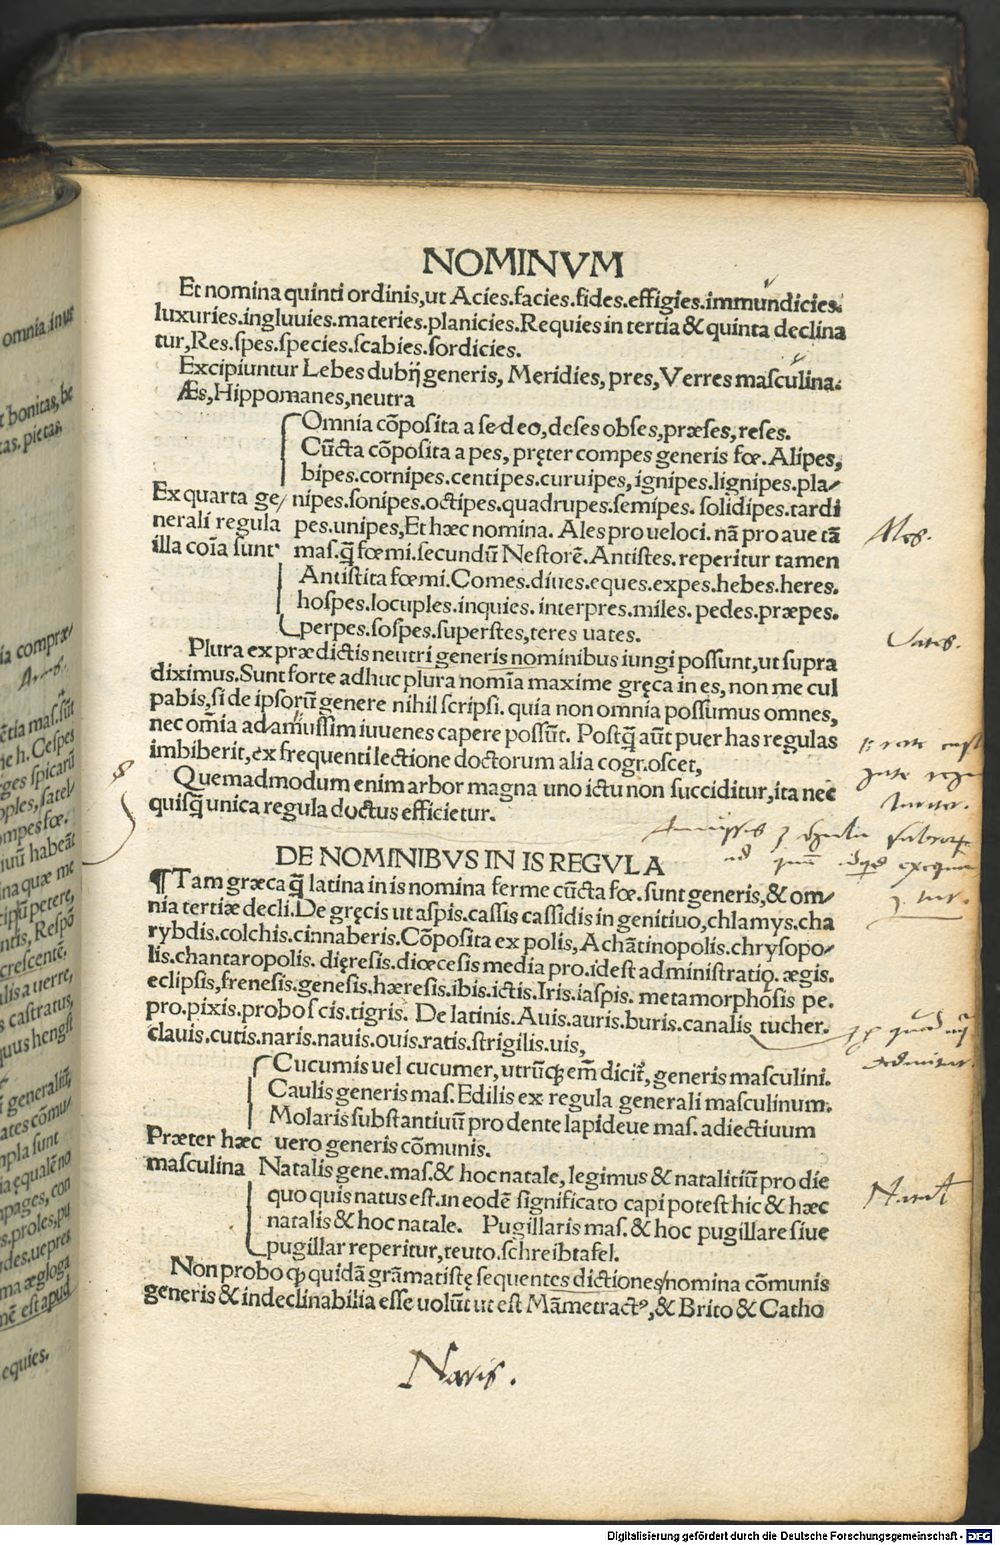 NOMINVM
Et nomina quinti ordinis,ut Acies.facies.fides.effigies.immundicies.
luxuries.ingluuies.materies.planicies.Requies in tertia & quinta declina
tur,Res.spes.species.scabies.sordicies.
Excipiuntur Lebes dubij generis, Meridies, pres, Verres masculina.
Æs,Hippomanes,neutra
Omnia cõposita a sedeo,deses obses,præses,reses.
Cũcta cõposita a pes, pręter compes generis fœ. Alipes,
bipes.cornipes.centipes.curuipes, ignipes.lignipes.pla/
Ex quarta ge/ nipes.sonipes.octipes.quadrupes.semipes. solidipes.tardi
nerali regula pes.unipes,Et hæc nomina. Ales pro ueloci. nã pro aue tã
illa coĩa sunt mas.q̃ fœmi.secundũ Nestorẽ.Antistes.reperitur tamen
Antistita fœmi.Comes.diues.eques.expes.hebes.heres.
hospes.locuples.inquies. interpres.miles. pedes.præpes.
perpes.sospes.superstes,teres uates.
Plura ex prædictis neutri generis nominibus iungi possunt,ut supra
diximus.Sunt forte adhuc plura nomĩa maxime gręca in es, non me cul
pabis,si de ipsorũ genere nihil scripsi. quia non omnia possumus omnes,
nec om̃ia adamussim iuuenes capere possũt. Postq̃ aũt puer has regulas
imbiberit,ex frequenti lectione doctorum alia cognoscet,
Quemadmodum enim arbor magna uno ictu non succiditur,ita nec
quisq̃ unica regula doctus efficietur.
DE NOMINIBVS IN IS REGVLA
¶Tam græca q̃ latina in is nomina ferme cũcta fœ. sunt generis,& om/
nia tertiæ decli.De gręcis ut aspis.cassis cassidis in genitiuo,chlamys.cha
rybdis.colchis.cinnaberis.Cõposita ex polis, Achãtinopolis.chrysopo/
lis.chantaropolis. dięresis.diœcesis media pro.idest administratio. ægis.
eclipsis,frenesis.genesis.hæresis.ibis.ictis.Iris.iaspis. metamorphosis pe.
pro.pixis.proboscis.tigris. De latinis.Auis.auris.buris.canalis tucher.
clauis.cutis.naris.nauis.ouis.ratis.strigilis.uis,
Cucumis uel cucumer, utrũq; em̃ dicit̃, generis masculini.
Caulis generis mas.Edilis ex regula generali masculinum.
Molaris substantiuũ pro dente lapideue mas. adiectiuum
Præter hæc uero generis cõmunis.
masculina Natalis gene.mas.& hoc natale, legimus & natalitiũ pro die
quo quis natus est.in eodẽ significato capi potest hic & hæc
natalis & hoc natale. Pugillaris mas. & hoc pugillare siue
pugillar reperitur,teuto.schreibtafel.
Non probo q; quidã grãmatistę sequentes dictiones nomina cõmunis
generis & indeclinabilia esse uolũt ut est Mãmetractꝰ,& Brito & Catho
Ales.
Vates.
Naris.
Digitalisierung gefördert durch die Deutsche Forschungsgemeinschaft - DFG